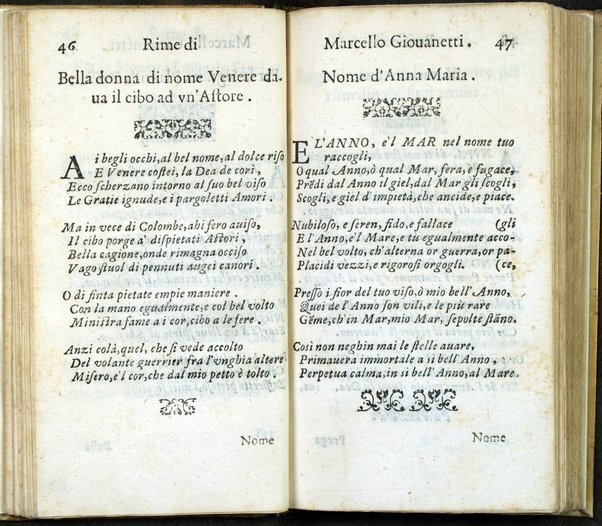 46 Rime di
Bella donna di nome Venere da-
ua il cibo ad vn'Astore.
Ai begli occhi, al bel nome, al dolce riso
E Venere costei, la Dea de cori,
Ecco scherzano intorno al suo bel viso
Le Gratie ignude, e i pargoletti Amori.
Ma in vece di Colombe, ahi fero auiso,
Il cibo porge a' dispietati Astori,
Bella cagione, onde rimagna occiso
Vago stuol di pennuti augei canori.
O di finta pietate empie maniere.
Con la mano egualmente, e col bel volto
Ministra fame a i cor, cibo a le fere.
Anzi colà, quel, che si vede accolto
Del volante guerrier fra l'vnghia altere
Misero, è'l cor, che dal mio petto è tolto.
Nome
Marcello Giouanetti. 47
Nome d'Anna Maria.
E L'ANNO, e'l MAR nel nome tuo
raccogli,
O qual Anno, ò qual Mar, fera, e fugace,
Prẽdi dal Anno il giel, dal Mar gli scogli,
Scogli, e giel d'impietà, che ancide, e piace.
Nubiloso, e seren, fido, e fallace (gli
E l'Anno, e'l Mare, e tu egualmente acco-
Nel bel volto, ch'alterna or guerra, or pa-
Placidi vezzi, e rigorosi orgogli. (ce,
Presso i fior del tuo viso, ò mio bell'Anno,
Quei de l'Anno son vili, e le più rare
Gẽme, ch'in Mar, mio Mar, sepolte stãno.
Così non neghin mai le stelle auare,
Primauera immortale a sì bell'Anno,
Perpetua calma, in sì bell'Anno, al Mare.
Nome